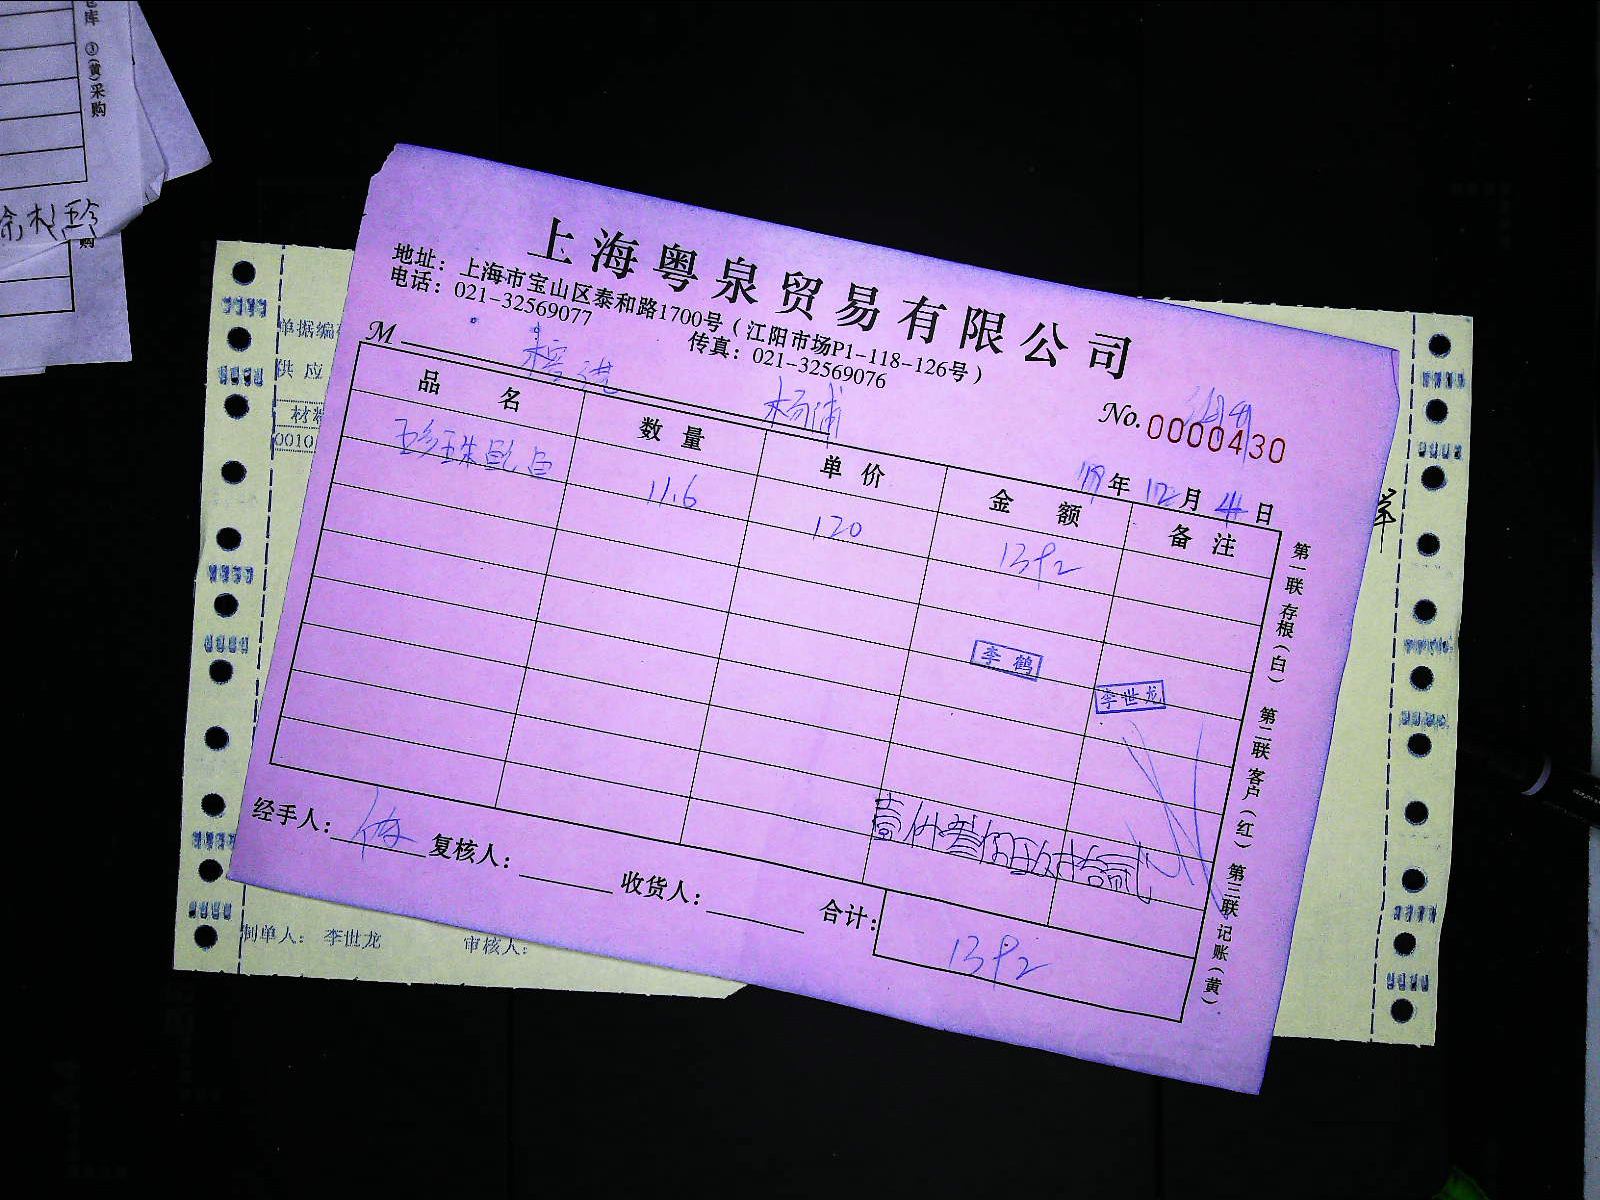 仓库 ③(黄)采购
购
单据编
供应
材料
0010
上海粤泉贸易有限公司
地址：上海市宝山区泰和路1700号（江阳市场P1-118-126号）
电话：021-32569077 传真：021-32569076
M 杨浦
No.0000430
年 12月 4日
品名 数量 单价 金额 备注
珍珠龙白 11.6 120 1392
李鹤
李世龙
壹仟叁佰玖拾贰元
经手人： 复核人： 收货人： 合计： 1392
第一联 存根（白） 第二联 客户（红） 第三联 记账（黄）
制单人：李世龙 审核人：